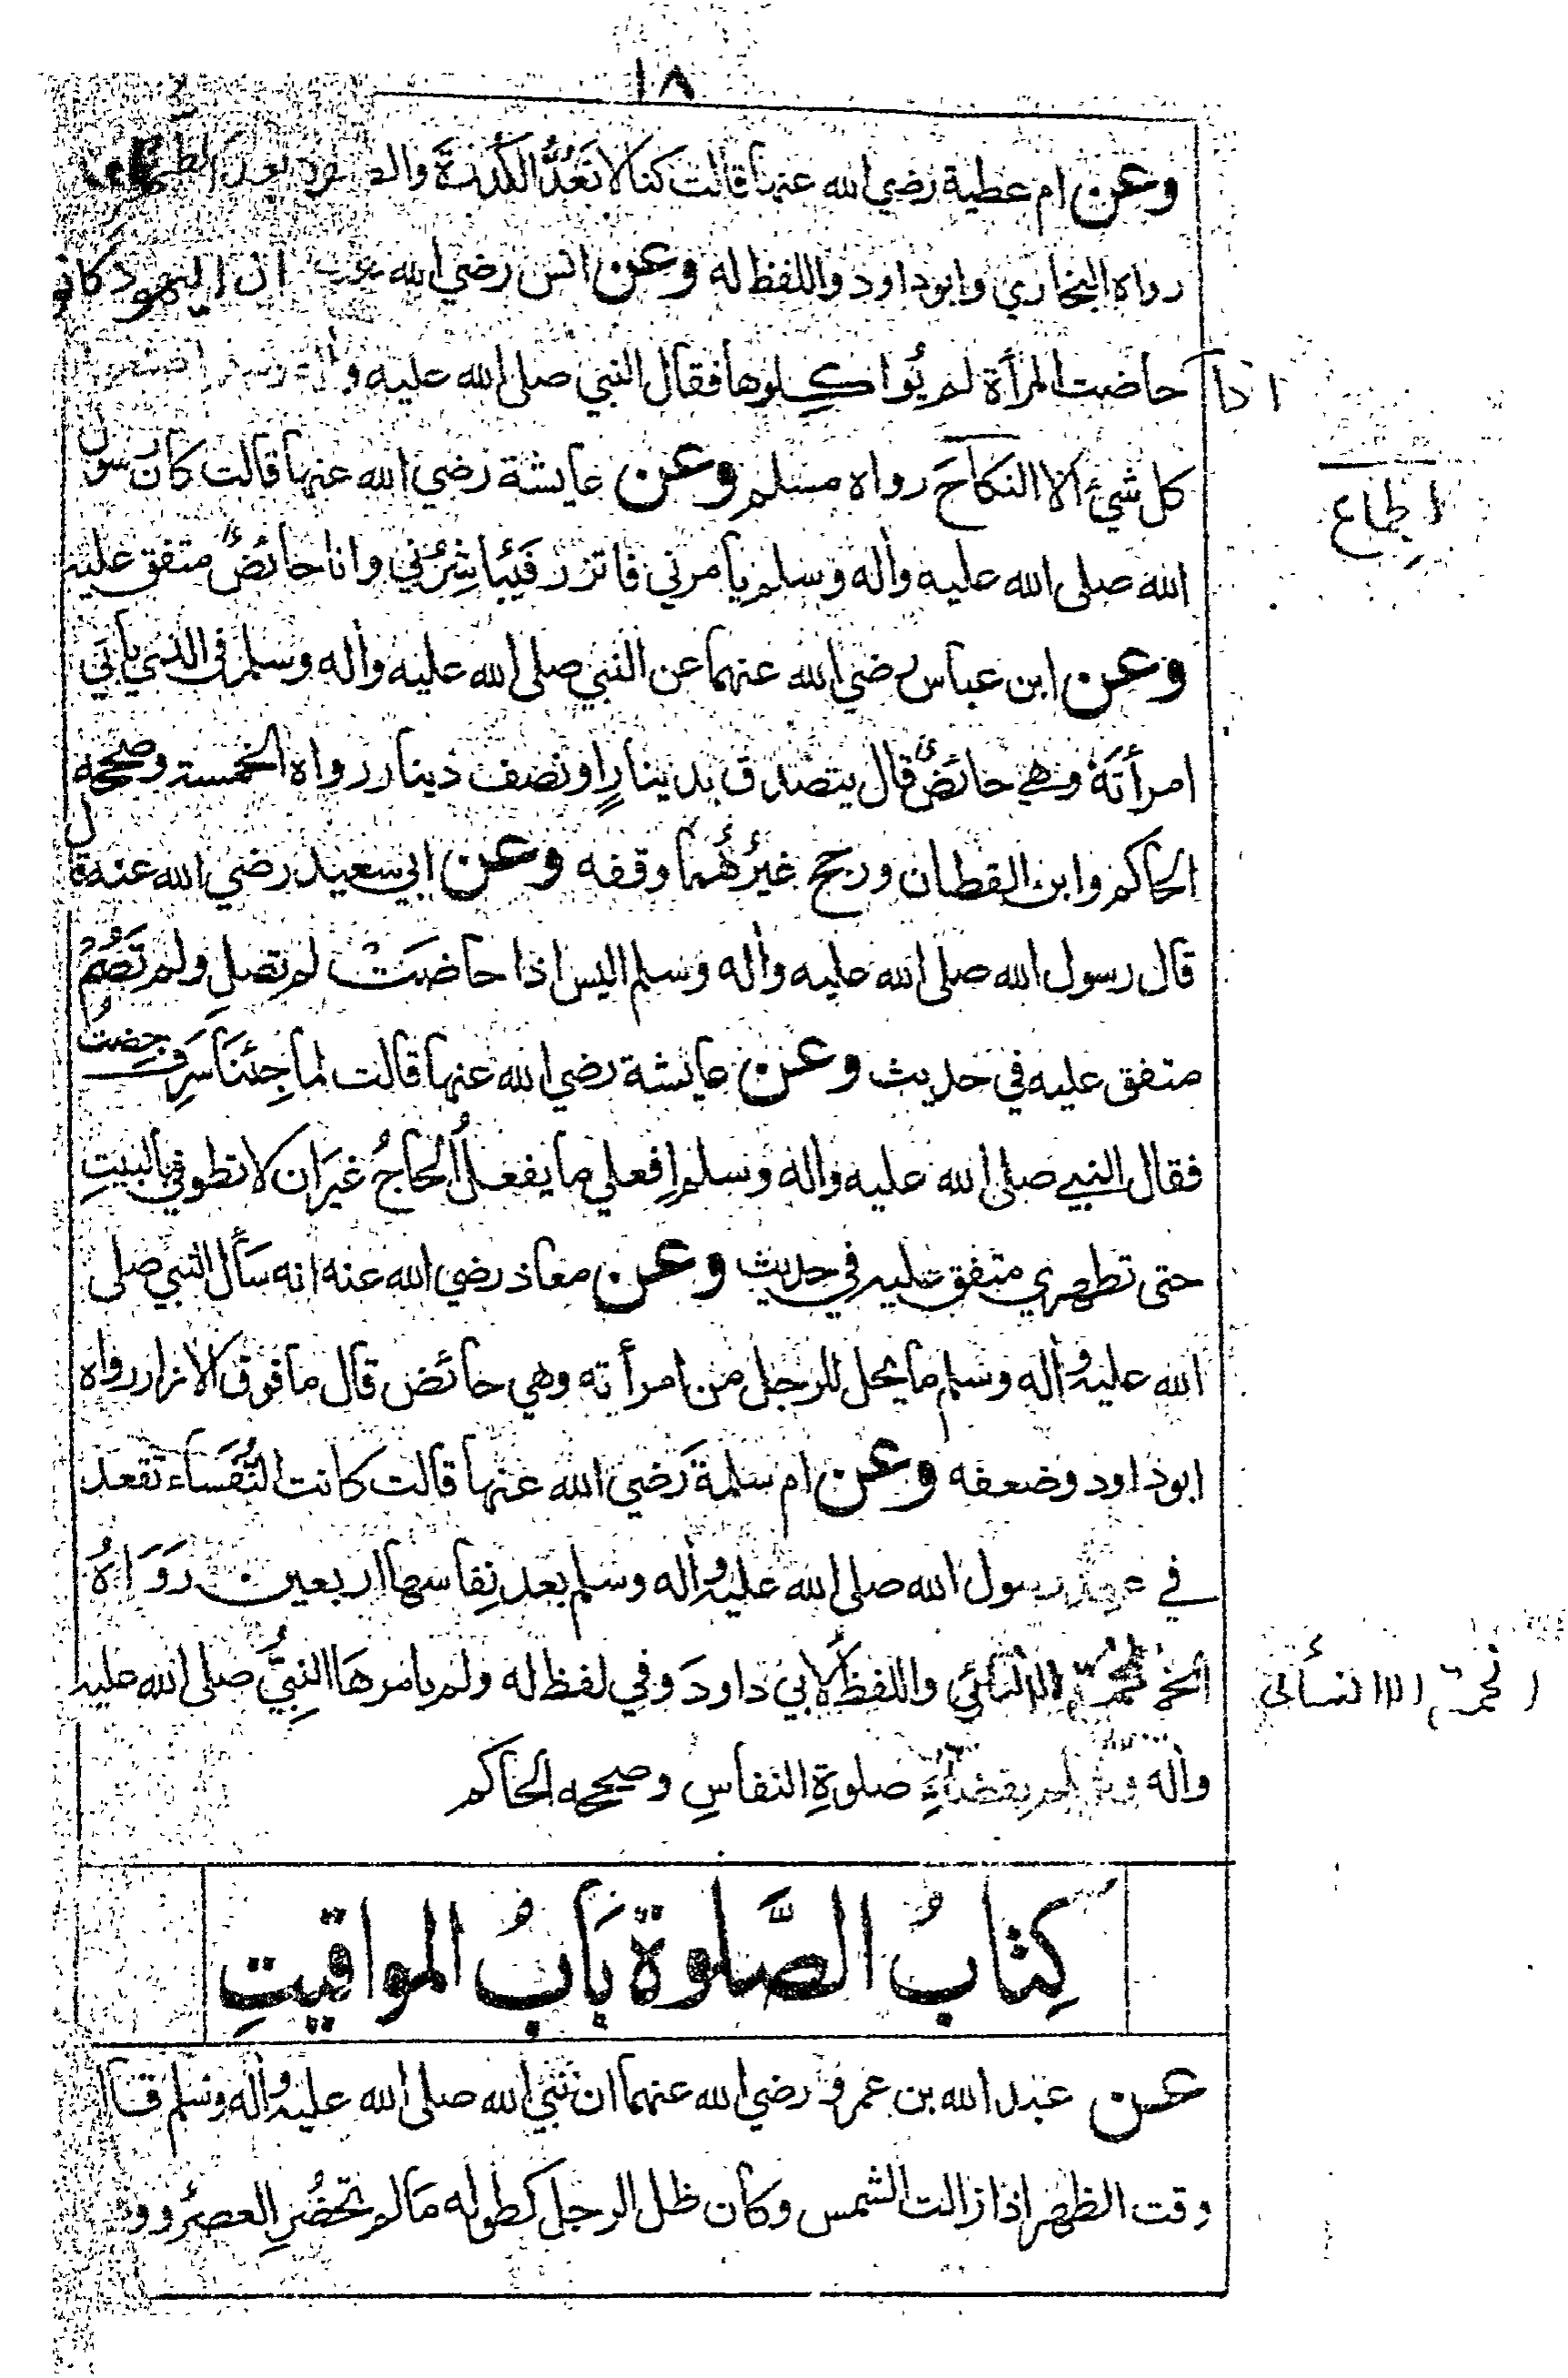 ١٨
وعن ام عطية رضي الله عنها قالت كنا لا نَعُدُّ الكُدْرَةَ والصفرة بعد الطهر
رواه البخاري وابوداود واللفظ له وعن انس رضي الله عنه ان اليهود كانوا
اذا حاضت المرأة لم يُواكِلوها فقال النبي صلى الله عليه وأله وسلم اصنعوا
كل شيءٍ الا النكاحَ رواه مسلم وعن عايشة رضي الله عنها قالت كان رسول
الجماع
الله صلى الله عليه وأله وسلم يأمرني فاتزر فَيُباشِرُني وانا حائضٌ متفق عليه
وعن ابن عباس رضي الله عنهما عن النبي صلى الله عليه وأله وسلم في الذي يأتي
امرأتَهُ وهي حائضٌ قال يتصدق بدينارٍ او نصف دينار رواه الخمسة وصححه
الحاكم وابن القطان ورجح غيرُهُما وقفه وعن ابي سعيد رضي الله عنه قال
قال رسول الله صلى الله عليه وأله وسلم اليس اذا حاضَتْ لم تصلِ ولم تَصُمْ
متفق عليه في حديث وعن عايشة رضي الله عنها قالت لما جِئنَا سَرِفَ حِضتُ
فقال النبي صلى الله عليه واله وسلم اِفعلي ما يفعلُ الحاجُ غيرَ ان لا تطوفي بالبيتِ
حتى تطهري متفق عليه في حديث وعن معاذ رضي الله عنه انه سَأل النبي صلى
الله عليه وأله وسلم ما يحل للرجل من امرأته وهي حائض قال ما فوق الازار رواه
ابوداود وضعفه وعن ام سلمة رَضي الله عنها قالت كانت النُفَساء تقعد
في عهد رسول الله صلى الله عليه وأله وسلم بعد نِفاسها اربعين رَوَاهُ
الخمسة الا النسائي واللفظُ لأبي داودَ وفي لفظ له ولم يامرهَا النبِيُّ صلى الله عليه
الخمسة الا النسأى
وأله وسلم بقضآءِ صلوةِ النفاسِ وصححه الحاكم
كِتَابُ الصَّلوة بَابُ المواقيتِ
عن عبد الله بن عمرو رضي الله عنهما ان نبي الله صلى الله عليه وأله وسلم قال
وقت الظهر اذا زالت الشمس وكان ظل الرجل كطوله مَا لم تحضُرِ العصرُ وو